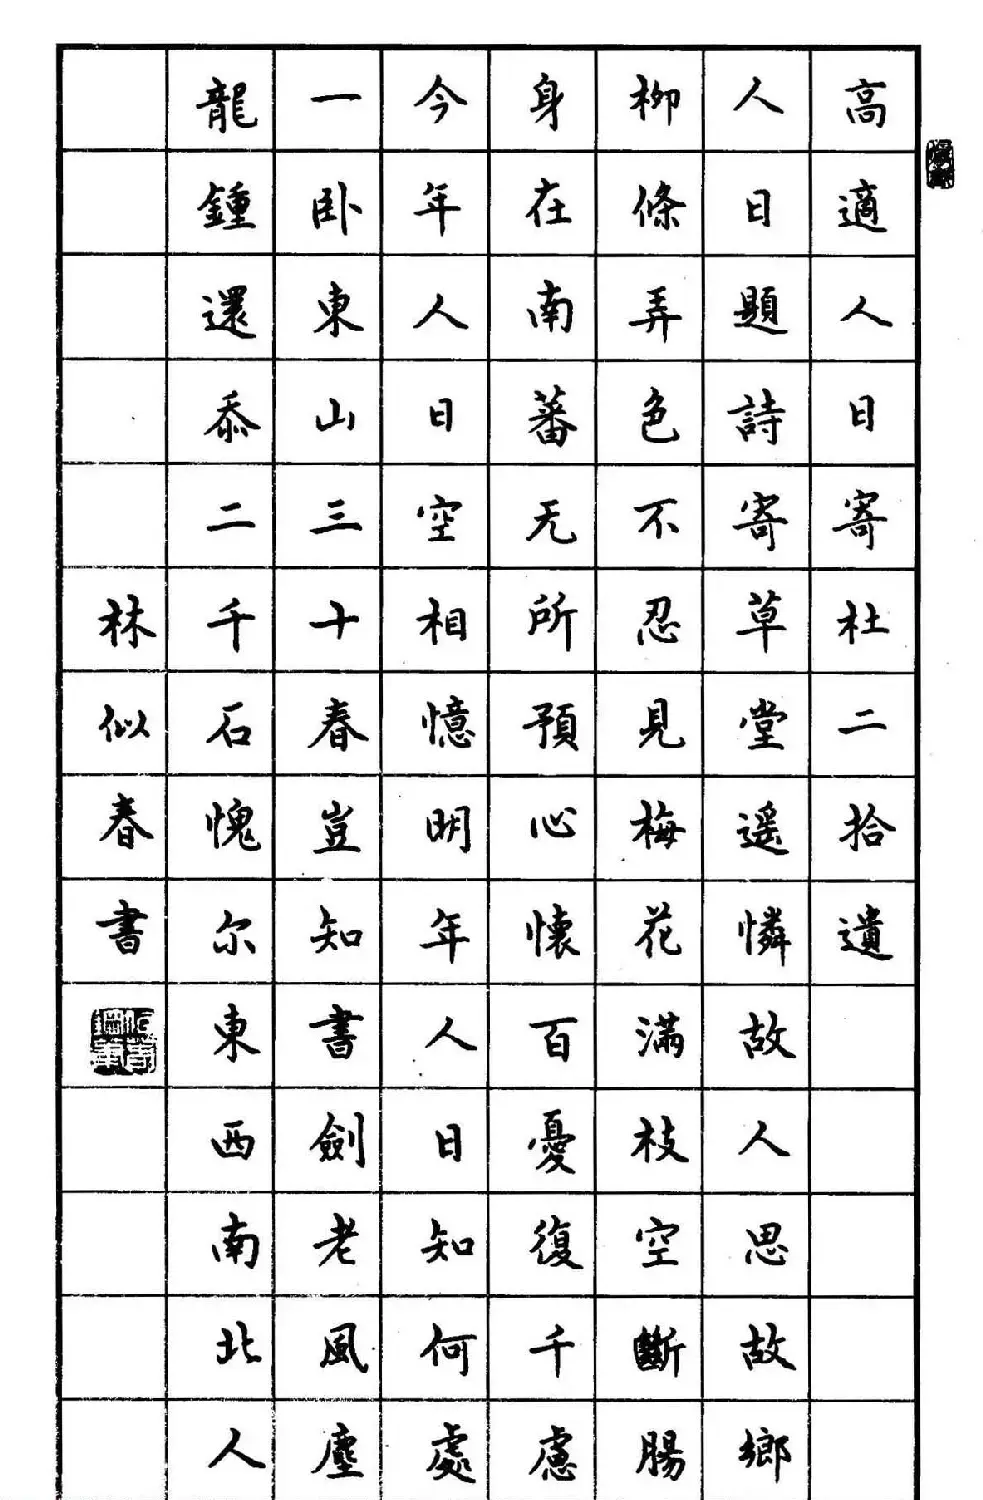 高適人日寄杜二拾遺
人日題詩寄草堂遥憐故人思故鄉
柳條弄色不忍見梅花滿枝空斷腸
身在南蕃无所預心懷百憂復千慮
今年人日空相憶明年人日知何處
一卧東山三十春豈知書劍老風塵
龍鍾還忝二千石愧尔東西南北人
林似春書